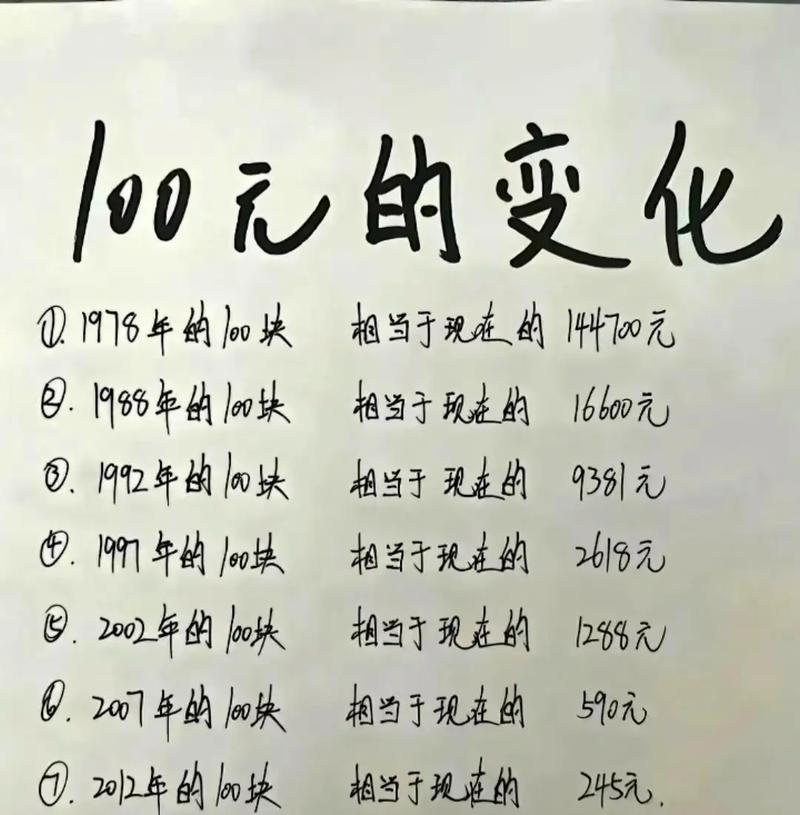 100元的变化
①.1978年的100块 相当于现在的 144700元
②.1988年的100块 相当于现在的 16600元
③.1992年的100块 相当于现在的 9381元
④.1997年的100块 相当于现在的 2618元
⑤.2002年的100块 相当于现在的 1288元
⑥.2007年的100块 相当于现在的 590元
⑦.2012年的100块 相当于现在的 245元.